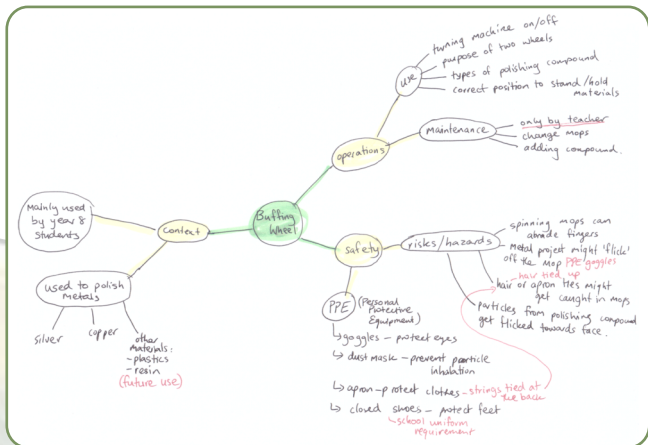 Buffing
Wheel
operations
use
turning machine on/off
purpose of two wheels
types of polishing compound
correct position to stand/hold
materials
maintenance
only by teacher
change mops
adding compound.
context
Mainly used
by year 8
students
used to polish
metals
silver
copper
other
materials:
-plastics
-resin
(future use)
safety
risks/hazards
spinning mops can
abrade fingers
metal project might 'flick'
off the mop PPE goggles
hair tied up
hair or apron ties might
get caught in mops
particles from polishing compound
get flicked towards face.
PPE (Personal
Protective
Equipment)
goggles - protect eyes
dust mask - prevent particle
inhalation
apron - protect clothes - strings tied at
the back
closed shoes - protect feet
school uniform
requirement